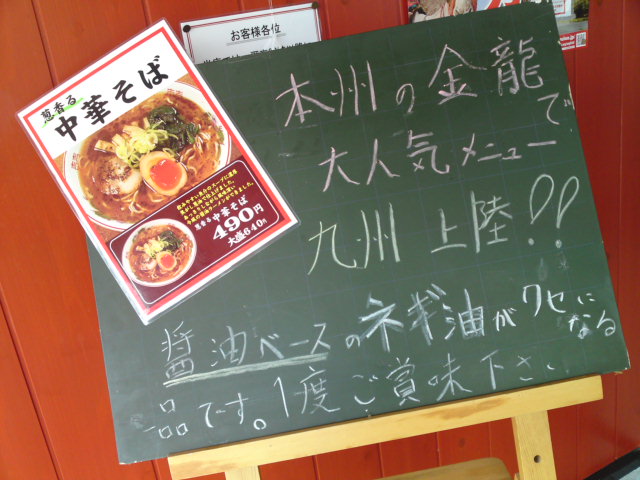 お客様各位
葱香る
中華そば
葱香る中華そば
490円
大盛640円
本州の金龍で
大人気メニュー
九州上陸!!
醤油ベースのネギ油がクセになる
一品です。1度ご賞味下さい